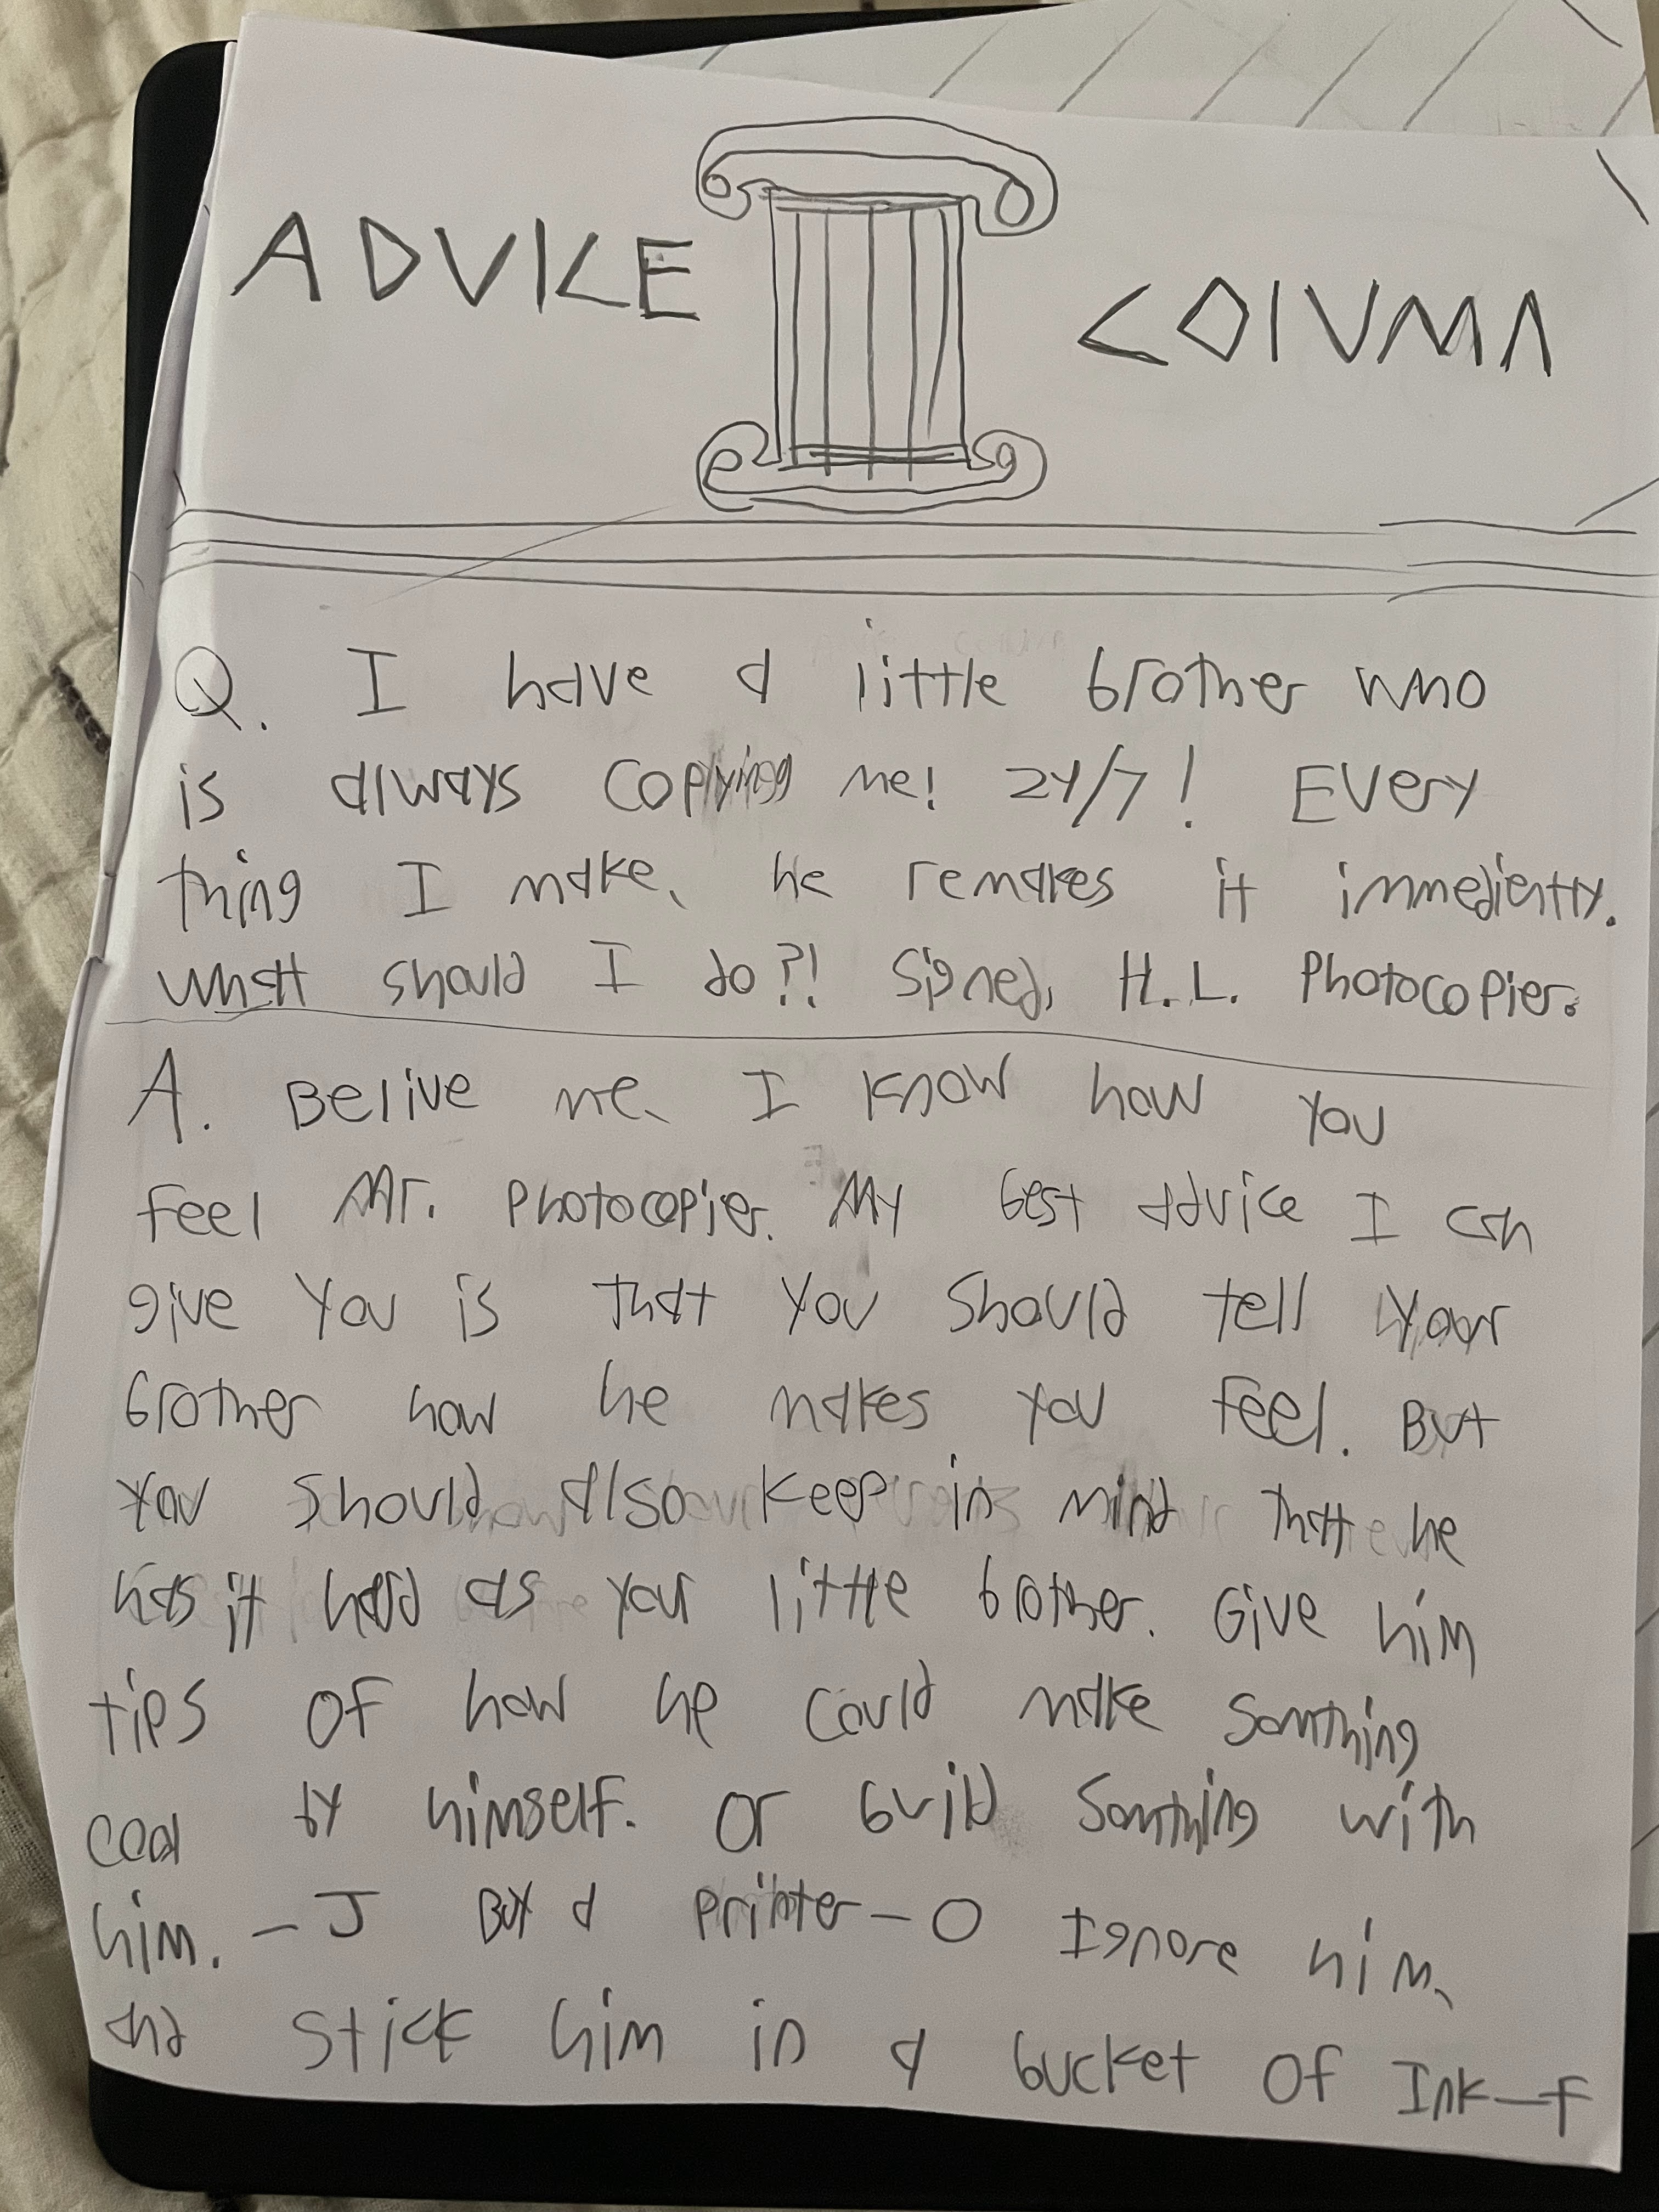 ADVICE COLUMN
Q. I have a little brother who
is always copying me! 24/7! Every
thing I make, he remakes it immedientty.
What should I do?! Signed, H.L. Photocopier.
A. Belive me, I know how you
feel Mr. Photocopier. My best advice I can
give you is that you should tell your
brother how he makes you feel. But
you should also keep in mind that he
has it hard as your little brother. Give him
tips of how he could make somthing
cool by himself. Or build somthing with
him. -J Buy a printer-O Ignore him,
and stick him in a bucket of Ink-F